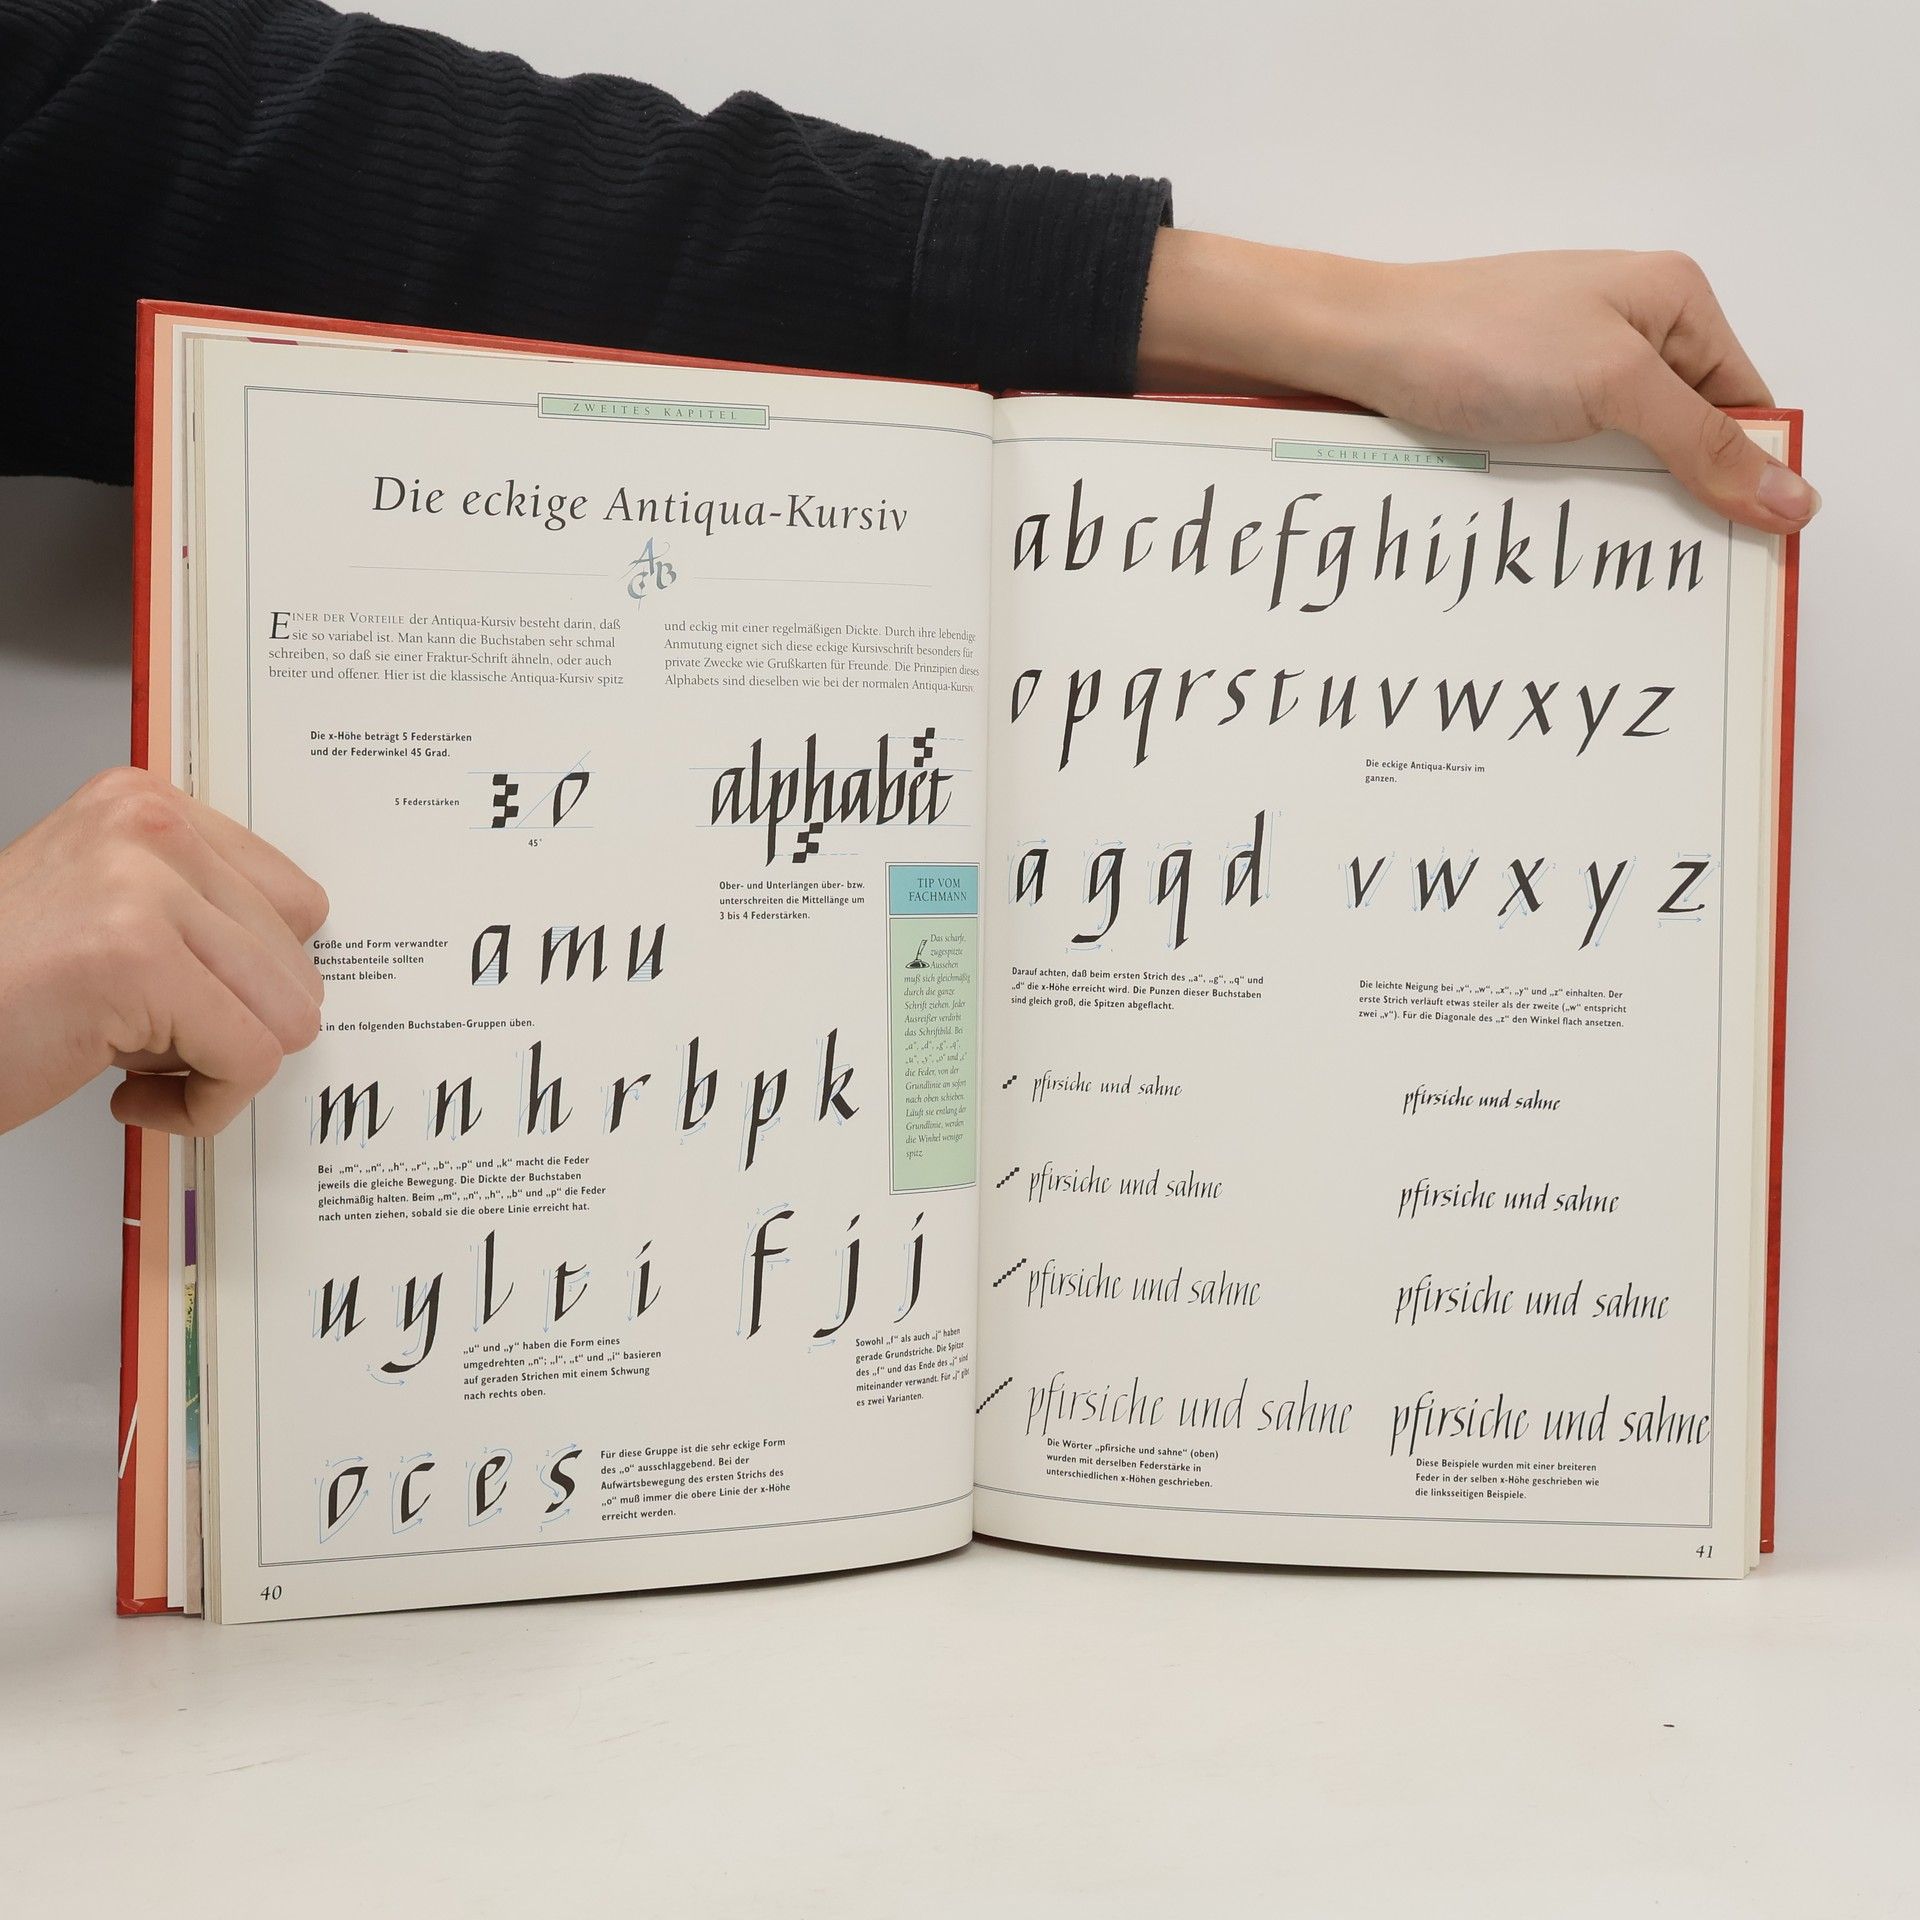 ZWEITES KAPITEL
Die eckige Antiqua-Kursiv
ABC
EINER DER VORTEILE der Antiqua-Kursiv besteht darin, daß
sie so variabel ist. Man kann die Buchstaben sehr schmal
schreiben, so daß sie einer Fraktur-Schrift ähneln, oder auch
breiter und offener. Hier ist die klassische Antiqua-Kursiv spitz
und eckig mit einer regelmäßigen Dickte. Durch ihre lebendige
Anmutung eignet sich diese eckige Kursivschrift besonders für
private Zwecke wie Grußkarten für Freunde. Die Prinzipien dieses
Alphabets sind dieselben wie bei der normalen Antiqua-Kursiv.
Die x-Höhe beträgt 5 Federstärken
und der Federwinkel 45 Grad.
5 Federstärken
o
45°
alphabet
Ober- und Unterlängen über- bzw.
unterschreiten die Mittellänge um
3 bis 4 Federstärken.
Größe und Form verwandter
Buchstabenteile sollten
onstant bleiben.
a m u
t in den folgenden Buchstaben-Gruppen üben.
m n h r b p k
Bei „m“, „n“, „h“, „r“, „b“, „p“ und „k“ macht die Feder
jeweils die gleiche Bewegung. Die Dickte der Buchstaben
gleichmäßig halten. Beim „m“, „n“, „h“, „b“ und „p“ die Feder
nach unten ziehen, sobald sie die obere Linie erreicht hat.
u y l t i f j j
„u“ und „y“ haben die Form eines
umgedrehten „n“; „l“, „t“ und „i“ basieren
auf geraden Strichen mit einem Schwung
nach rechts oben.
Sowohl „f“ als auch „j“ haben
gerade Grundstriche. Die Spitze
des „f“ und das Ende des „j“ sind
miteinander verwandt. Für „j“ gibt
es zwei Varianten.
o c e s
Für diese Gruppe ist die sehr eckige Form
des „o“ ausschlaggebend. Bei der
Aufwärtsbewegung des ersten Strichs des
„o“ muß immer die obere Linie der x-Höhe
erreicht werden.
TIP VOM
FACHMANN
Das scharfe,
zugespitzte
Aussehen
muß sich gleichmäßig
durch die ganze
Schrift ziehen. Jeder
Ausreißer verdirbt
das Schriftbild. Bei
„a“, „d“, „g“, „q“,
„u“, „y“, „o“ und „c“
die Feder, von der
Grundlinie an sofort
nach oben schieben.
Läuft sie entlang der
Grundlinie, werden
die Winkel weniger
spitz.
40
SCHRIFTARTEN
a b c d e f g h i j k l m n
o p q r s t u v w x y z
Die eckige Antiqua-Kursiv im
ganzen.
a g q d
v w x y z
Darauf achten, daß beim ersten Strich des „a“, „g“, „q“ und
„d“ die x-Höhe erreicht wird. Die Punzen dieser Buchstaben
sind gleich groß, die Spitzen abgeflacht.
Die leichte Neigung bei „v“, „w“, „x“, „y“ und „z“ einhalten. Der
erste Strich verläuft etwas steiler als der zweite („w“ entspricht
zwei „v“). Für die Diagonale des „z“ den Winkel flach ansetzen.
pfirsiche und sahne
pfirsiche und sahne
pfirsiche und sahne
pfirsiche und sahne
Die Wörter „pfirsiche und sahne“ (oben)
wurden mit derselben Federstärke in
unterschiedlichen x-Höhen geschrieben.
pfirsiche und sahne
pfirsiche und sahne
pfirsiche und sahne
pfirsiche und sahne
Diese Beispiele wurden mit einer breiteren
Feder in der selben x-Höhe geschrieben wie
die linksseitigen Beispiele.
41